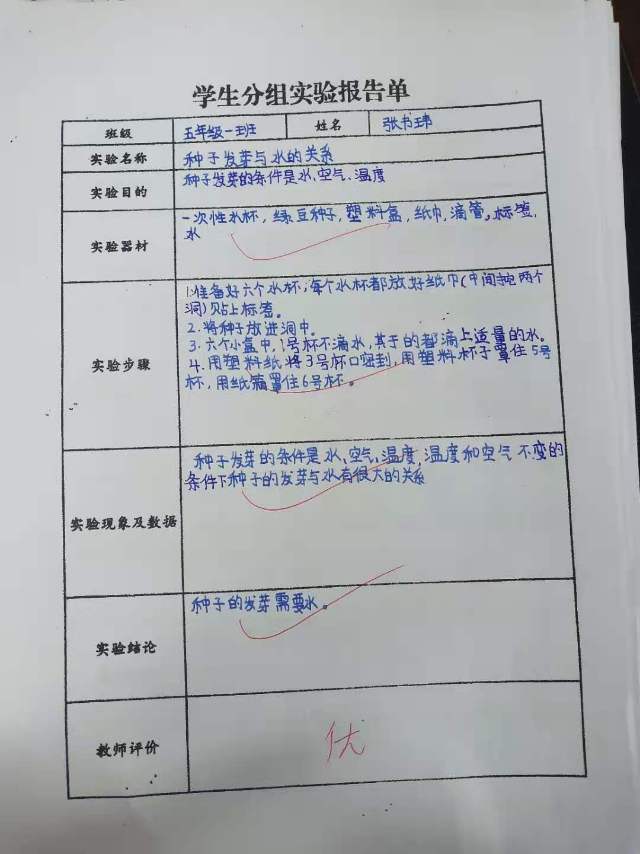 学生分组实验报告单
班级 五年级一班 姓名 张书玮
实验名称 种子发芽与水的关系
实验目的 种子发芽的条件是水、空气、温度
实验器材 一次性水杯,绿豆种子,塑料盒,纸巾,滴管,标签,
水
实验步骤
1.准备好六个水杯,每个水杯都放好纸巾(中间掏两个
洞)贴上标签。
2.将种子放进洞中。
3.六个小盒中,1号杯不滴水,其于的都滴上适量的水。
4.用塑料纸将3号杯口密封,用塑料杯子罩住5号
杯,用纸箱罩住6号杯。
实验现象及数据
种子发芽的条件是水、空气、温度,温度和空气不变的
条件下种子的发芽与水有很大的关系
实验结论
种子的发芽需要水。
教师评价 优